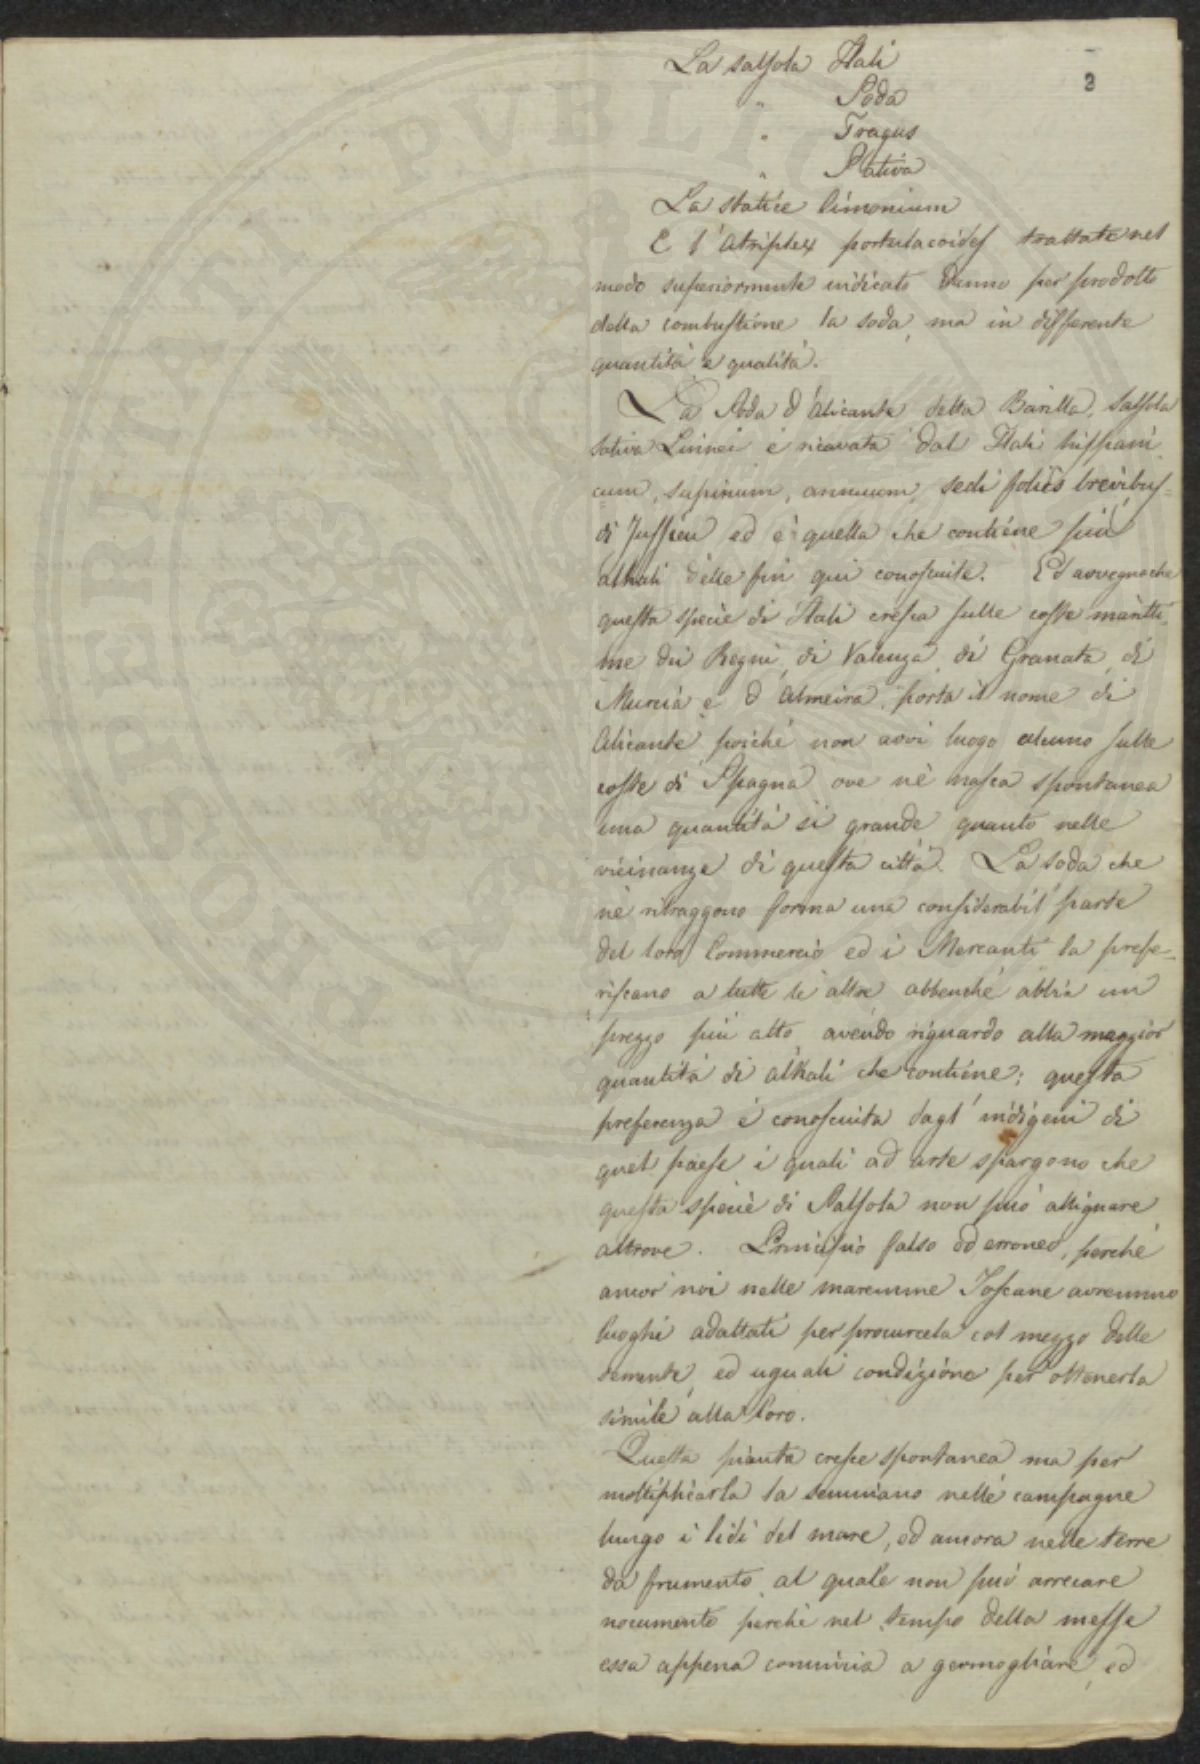 2
La salsola Kali
" Soda
" Tragus
" Sativa
La statice limonium
E l'Atriplex portulacoides trattate nel
modo superiormente indicato danno per prodotto
della combustione la soda, ma in differente
quantità e qualità.
La Soda d'Alicante detta Barilla, salsola
sativa Linnei è ricavata dal Kali hispani
cum, supinum, annuum, sedi foliis brevibus
di Jussieu ed è quella che contiene più
alkali delle fin qui conosciute. Ed avvegnache
questa specie di Kali cresca sulle coste maritti
me dei Regni, di Valenza, di Granata, di
Murcia e d'Almeira, porta il nome di
Alicante poiché non avvi luogo alcuno sulle
coste di Spagna ove nè nasca spontanea
una quantità si grande quanto nelle
vicinanze di questa città. La soda che
nè ritraggono forma una considerabil' parte
del loro Commercio ed i Mercanti la prefe-
riscano a tutte le altre abbenché abbia un
prezzo più alto, avendo riguardo alla maggior
quantità di alkali che contiene; questa
preferenza è conosciuta dagl' indigeni di
quel paese i quali ad arte spargono che
questa specie di Salsola non può allignare
altrove. Principio falso ed erroneo, perché
ancor noi nelle maremme Toscane avremmo
luoghi adattati per procurcela col mezzo delle
sementi, ed uguali condizione per ottenerla
simile alla loro.
Questa pianta cresce spontanea ma per
moltiplicarla la seminano nelle campagne
lungo i lidi del mare, ed ancora nelle terre
da frumento, al quale non può arrecare
nocumento perché nel tempo della messe
essa appena comincia a germogliare, ed